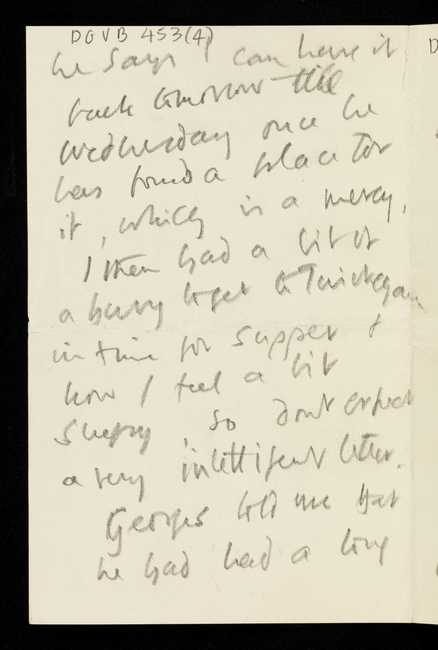 DGVB 453(4)
he says I can have it
back tomorrow till
Wednesday once he
has found a place for
it, which is a mercy.
I then had a bit of
a hurry to get to
in time for supper &
now I feel a bit
sleepy, so dont expect
a very intelligent letter.
Georges told me that
he had had a long